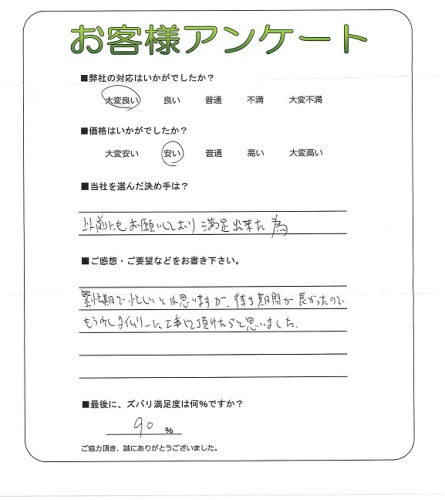 お客様アンケート
■弊社の対応はいかがでしたか?
大変良い 良い 普通 不満 大変不満
■価格はいかがでしたか?
大変安い 安い 普通 高い 大変高い
■当社を選んだ決め手は?
以前にもお願いしており満足出来た為
■ご感想・ご要望などをお書き下さい。
繁忙期で忙しいとは思いますが、待ち期間が長かったので
もう少しタイムリーに工事して頂けたらと思いました。
■最後に、ズバリ満足度は何%ですか?
90 %
ご協力頂き、誠にありがとうございました。